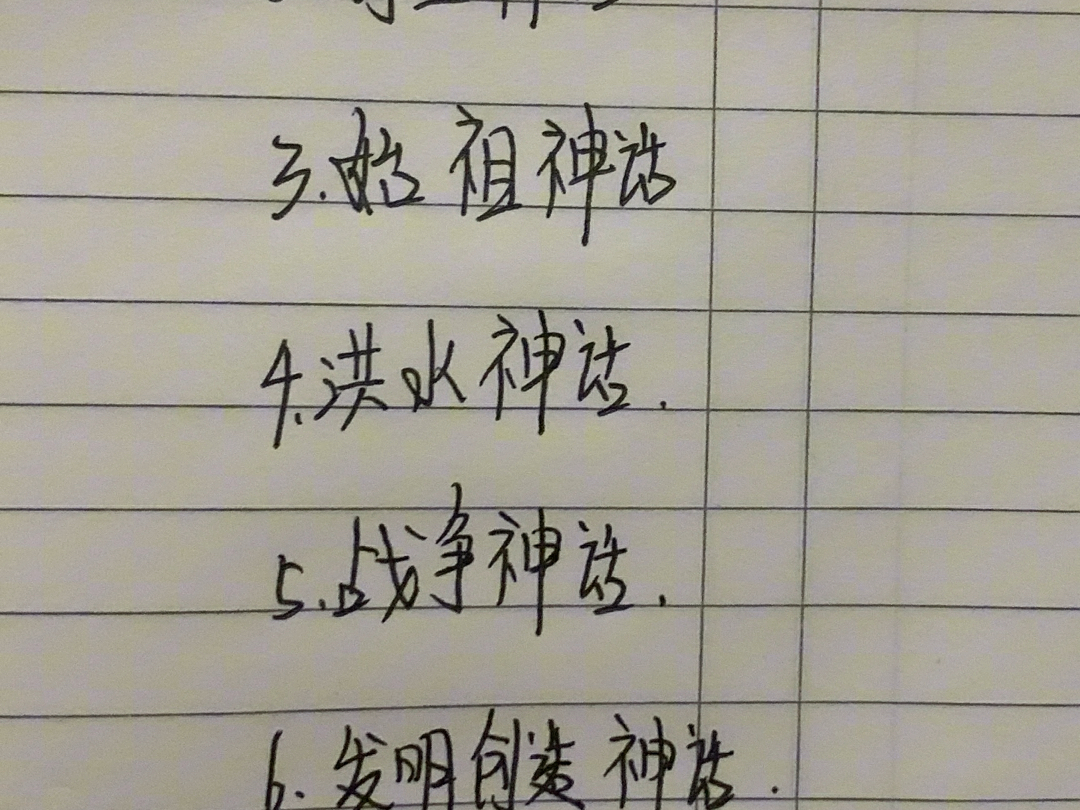 3.始祖神话
4.洪水神话.
5.战争神话.
6.发明创造神话.